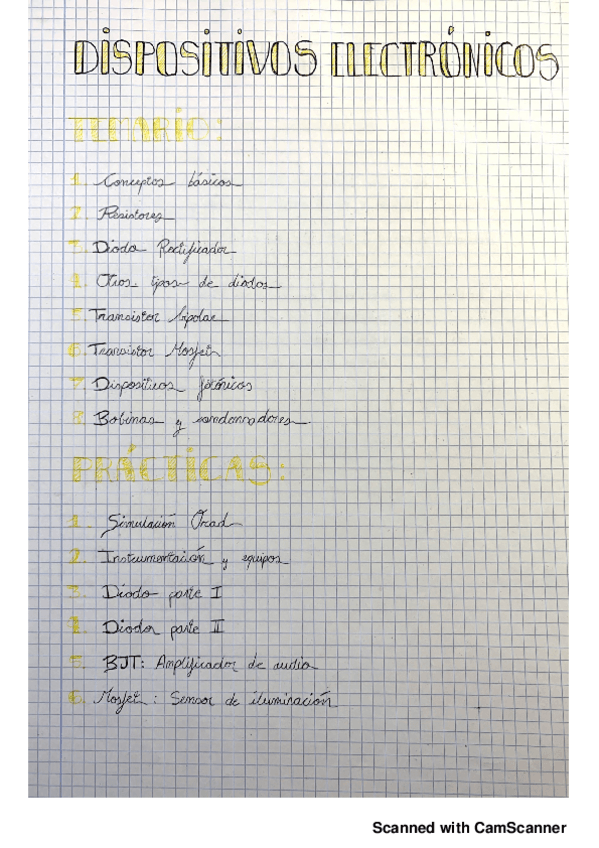 DISPOSITIVOS ELECTRÓNICOS
TEMARIO:
1. Conceptos básicos
2. Resistores
3. Diodo Rectificador
4. Otros tipos de diodos
5. Transistor bipolar
6. Transistor Mosfet
7. Dispositivos fotónicos
8. Bobinas y condensadores
PRÁCTICAS:
1. Simulación Orcad
2. Instrumentación y equipos
3. Diodo parte I
4. Diodos parte II
5. BJT: Amplificador de audio
6. Mosfet: Sensor de iluminación
Scanned with CamScanner